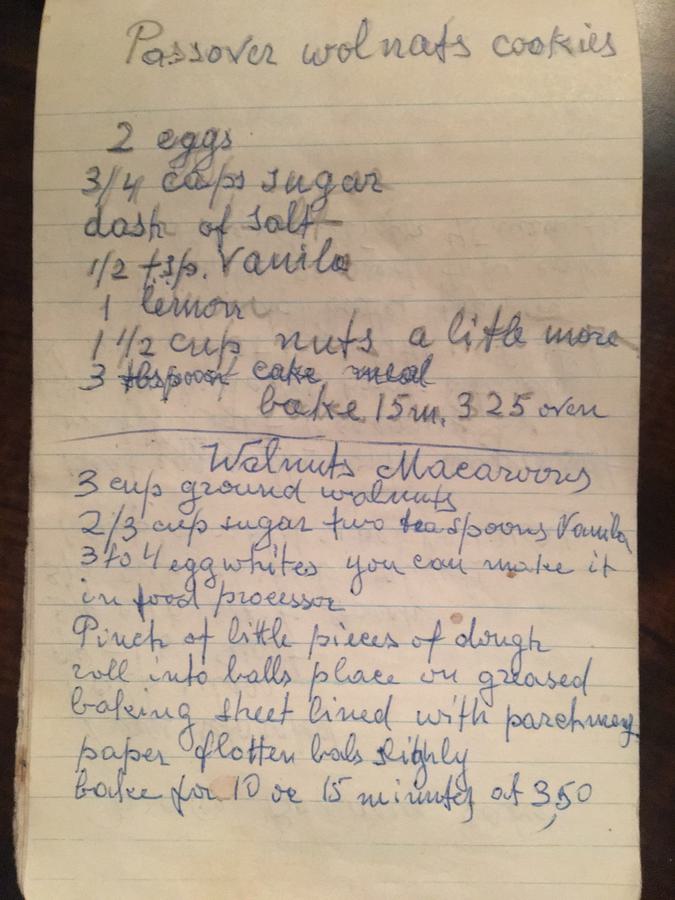 Passover wolnats cookies
2 eggs
3/4 caps sugar
dash of salt
1/2 tsp. Vanila
1 lemon
1 1/2 cup nuts a litle more
3 tbspoon cake meal
bake 15 m. 325 oven
Walnuts Macaroons
3 cup ground walnuts
2/3 cup sugar two teaspoons Vanila
3 to 4 egg whites you can make it
in food processor
Pinch of little pieces of dough
roll into balls place on greased
baking sheet lined with parchmey
paper flotten bals slighly
bake for 10 or 15 minutes at 350